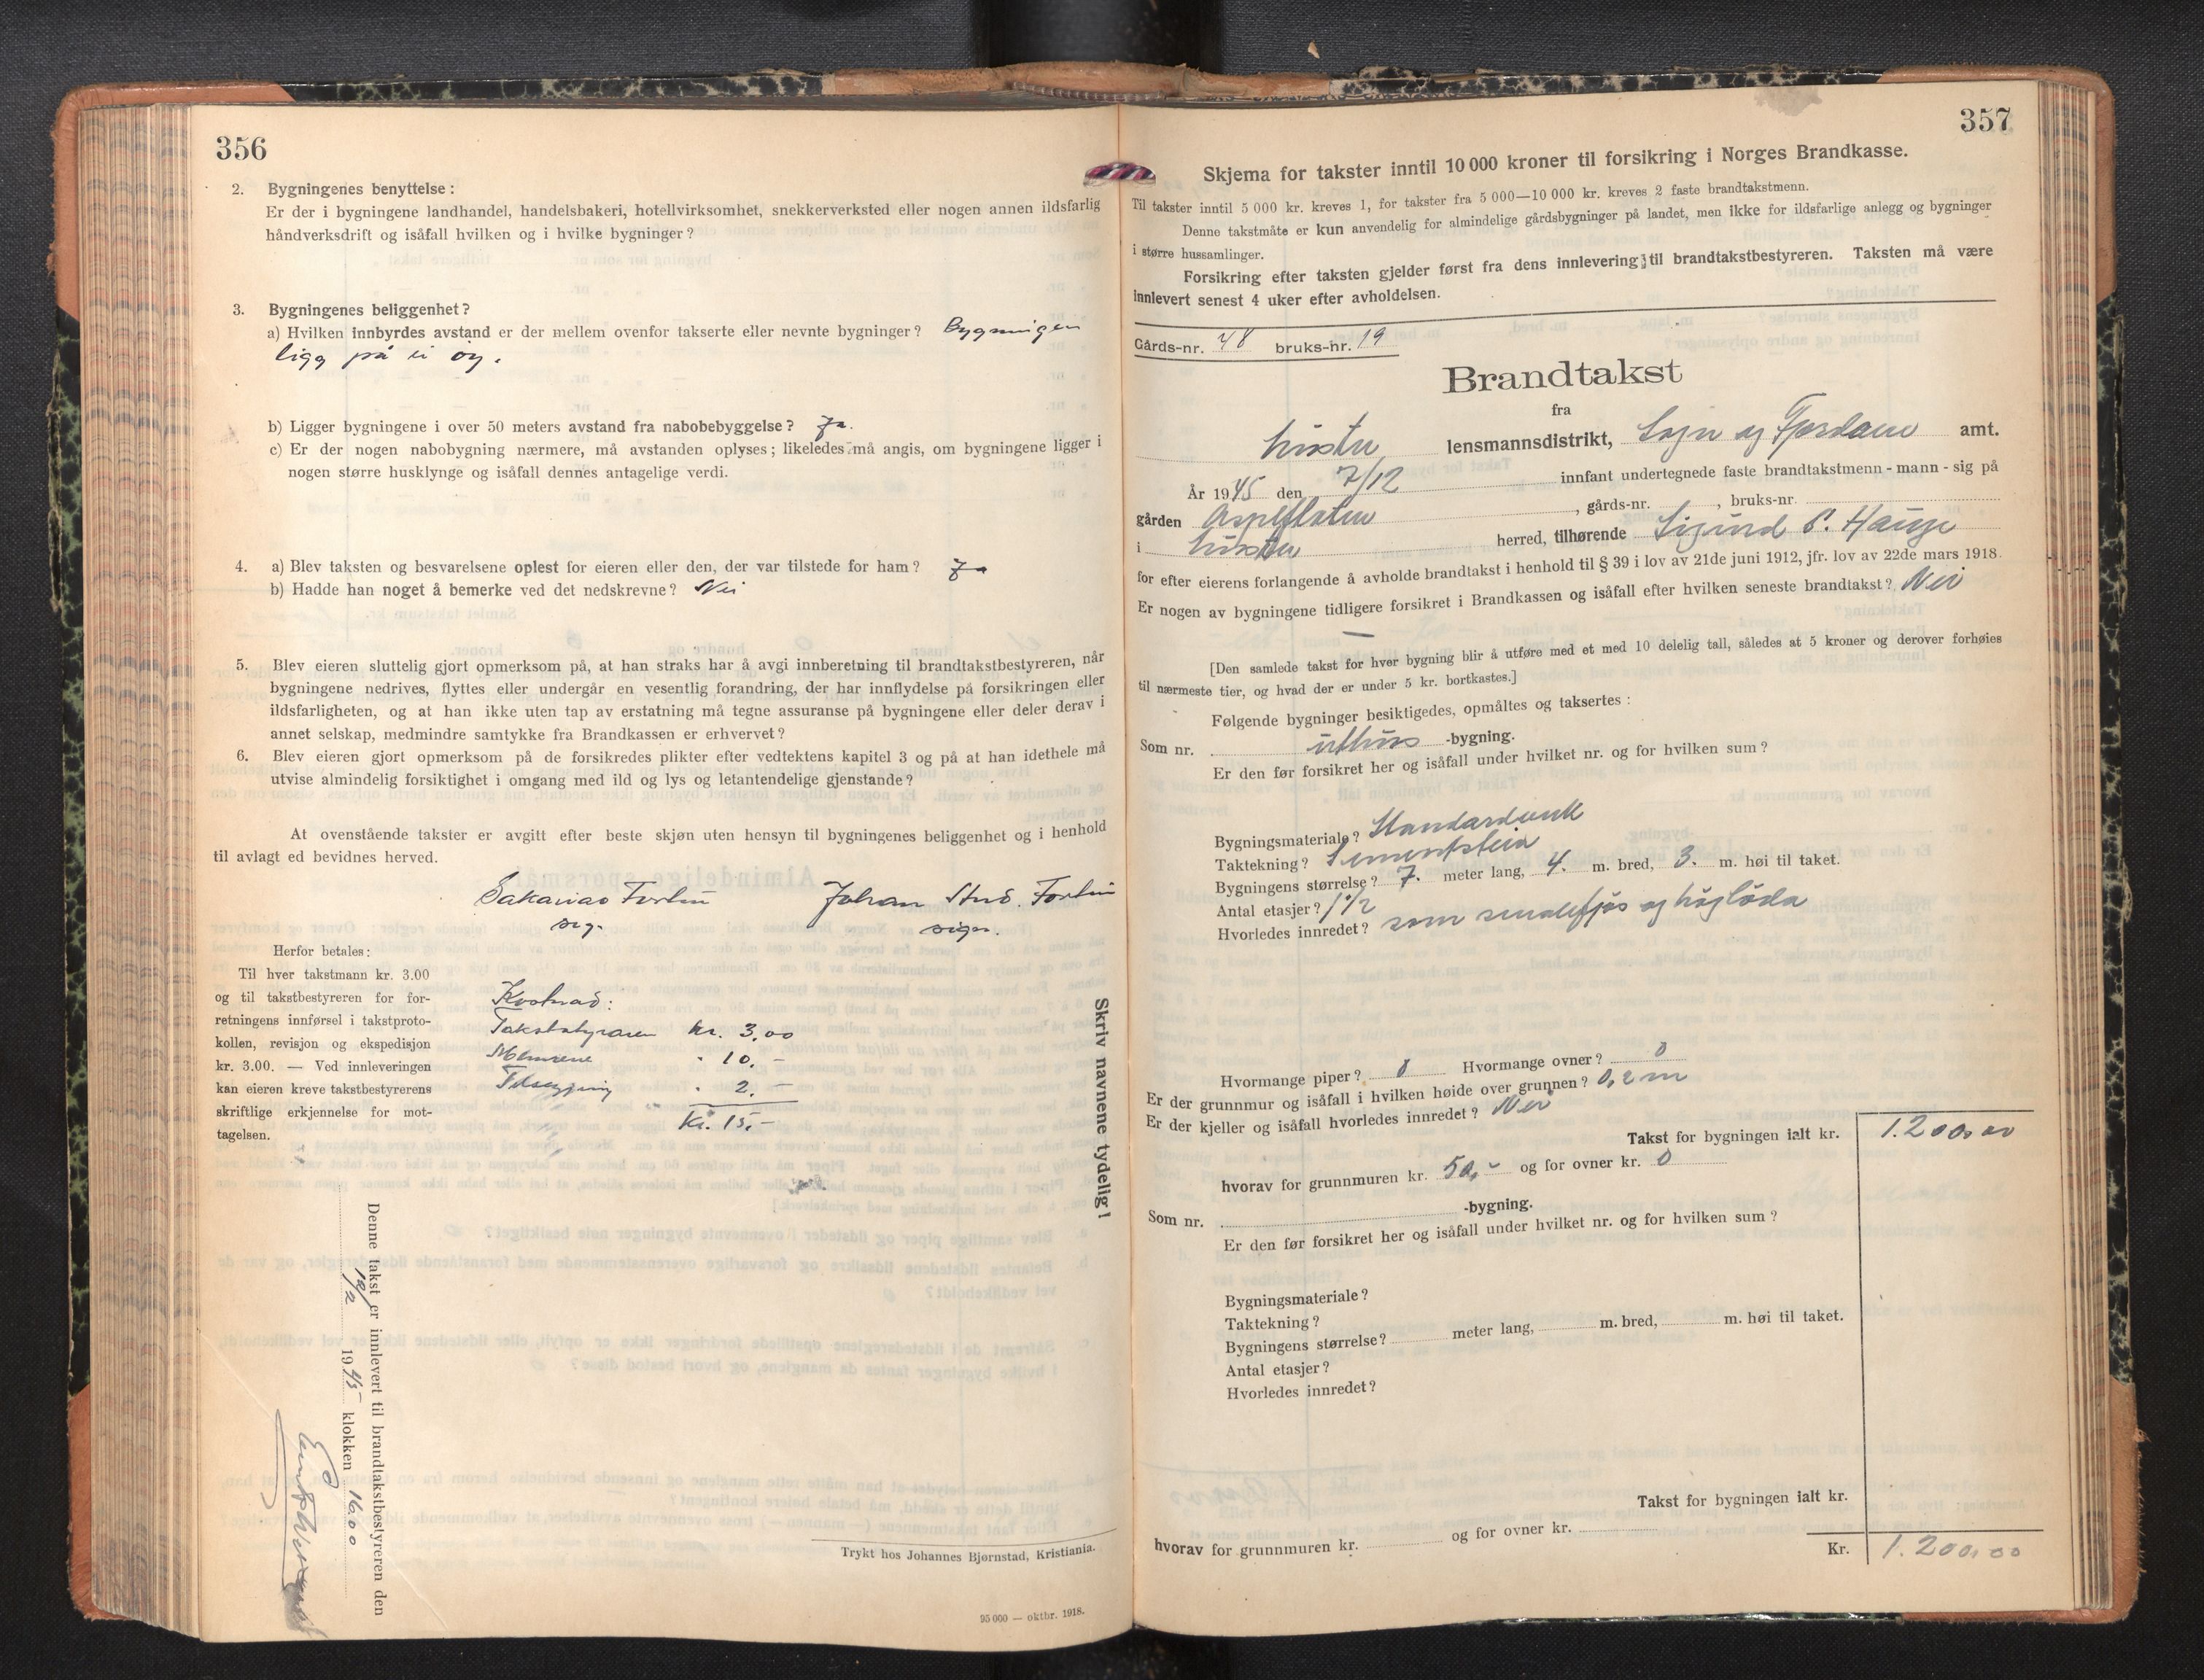 356
2. Bygningenes benyttelse :
Er der i bygningene landhandel, handelsbakeri, hotellvirksomhet, snekkerverksted eller nogen annen ildsfarlig
håndverksdrift og isåfall hvilken og i hvilke bygninger ?
3. Bygningenes beliggenhet ?
a) Hvilken innbyrdes avstand er der mellem ovenfor takserte eller nevnte bygninger ? Bygningen
ligg på ei øy.
b) Ligger bygningene i over 50 meters avstand fra nabobebyggelse ? Ja.
c) Er der nogen nabobygning nærmere, må avstanden oplyses ; likeledes må angis, om bygningene ligger i
nogen større husklynge og isåfall dennes antagelige verdi.
4. a) Blev taksten og besvarelsene oplest for eieren eller den, der var tilstede for ham ? Ja
b) Hadde han noget å bemerke ved det nedskrevne ? Nei
5. Blev eieren sluttelig gjort opmerksom på, at han straks har å avgi innberetning til brandtakstbestyreren, når
bygningene nedrives, flyttes eller undergår en vesentlig forandring, der har innflydelse på forsikringen eller
ildsfarligheten, og at han ikke uten tap av erstatning må tegne assuranse på bygningene eller deler derav i
annet selskap, medmindre samtykke fra Brandkassen er erhvervet ?
6. Blev eieren gjort opmerksom på de forsikredes plikter efter vedtektens kapitel 3 og på at han idethele må
utvise almindelig forsiktighet i omgang med ild og lys og letantendelige gjenstande ?
At ovenstående takster er avgitt efter beste skjøn uten hensyn til bygningenes beliggenhet og i henhold
til avlagt ed bevidnes herved.
Sakarias Fortun Johan Fortun
sig. sign.
Herfor betales :
Til hver takstmann kr. 3.00
og til takstbestyreren for for-
retningens innførsel i takstproto-
kollen, revisjon og ekspedisjon
kr. 3.00. — Ved innleveringen
kan eieren kreve takstbestyrerens
skriftlige erkjennelse for mot-
tagelsen.
Kostnad:
Takststyraren kr. 3,00
Mennene " 10,-
" 2.-
Kr. 15,-
Skriv navnene tydelig !
Denne takst er innlevert til brandtakstbestyreren den
19/2 1945 klokken 16.00
Trykt hos Johannes Bjørnstad, Kristiania.
95 000 — oktbr. 1918.
357
Skjema for takster inntil 10 000 kroner til forsikring i Norges Brandkasse.
Til takster inntil 5 000 kr. kreves 1, for takster fra 5 000—10 000 kr. kreves 2 faste brandtakstmenn.
Denne takstmåte er kun anvendelig for almindelige gårdsbygninger på landet, men ikke for ildsfarlige anlegg og bygninger
i større hussamlinger.
Forsikring efter taksten gjelder først fra dens innlevering til brandtakstbestyreren. Taksten må være
innlevert senest 4 uker efter avholdelsen.
Gårds-nr. 48 bruks-nr. 19
Brandtakst
fra
Luster lensmannsdistrikt, Sogn og Fjordane amt.
År 1945 den 7/12 innfant undertegnede faste brandtakstmenn - mann - sig på
gården Aspeflaten , gårds-nr. , bruks-nr.
i Luster herred, tilhørende Sigurd S. Hauge
for efter eierens forlangende å avholde brandtakst i henhold til § 39 i lov av 21de juni 1912, jfr. lov av 22de mars 1918.
Er nogen av bygningene tidligere forsikret i Brandkassen og isåfall efter hvilken seneste brandtakst ? Nei
—
[Den samlede takst for hver bygning blir å utføre med et med 10 delelig tall, således at 5 kroner og derover forhøies
til nærmeste tier, og hvad der er under 5 kr. bortkastes.]
Følgende bygninger besiktigedes, opmåltes og taksertes :
Som nr. uthus -bygning.
Er den før forsikret her og isåfall under hvilket nr. og for hvilken sum ?
Bygningsmateriale ? Standardverk
Taktekning ? Sementstein
Bygningens størrelse ? 7. meter lang, 4. m. bred, 3. m. høi til taket.
Antal etasjer ? 1 1/2
Hvorledes innredet ? som smalefjøs og høyløda
Hvormange piper ? 0 Hvormange ovner ? 0
Er der grunnmur og isåfall i hvilken høide over grunnen ? 0,2 m
Er der kjeller og isåfall hvorledes innredet ? Nei
Takst for bygningen ialt kr. 1.200,00
hvorav for grunnmuren kr. 50,- og for ovner kr. 0
Som nr. -bygning.
Er den før forsikret her og isåfall under hvilket nr. og for hvilken sum ?
Bygningsmateriale ?
Taktekning ?
Bygningens størrelse ? meter lang, m. bred, m. høi til taket.
Antal etasjer ?
Hvorledes innredet ?
Takst for bygningen ialt kr.
hvorav for grunnmuren kr. og for ovner kr.
Kr. 1.200,00